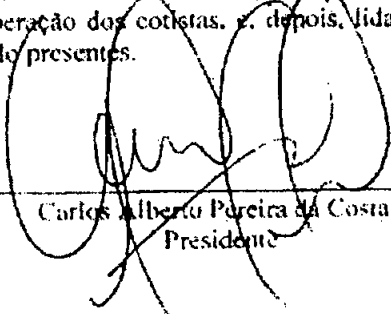 peração dos cotistas, e, depois, lida
do presentes.
Carlos Alberto Pereira da Costa
Presidente